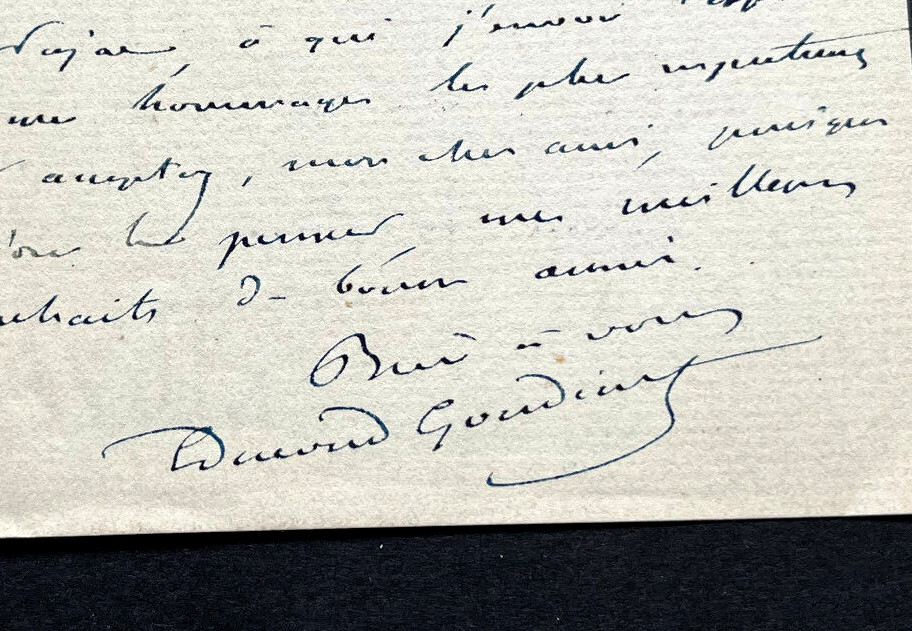 Najac, à qui j'envoie
mes hommages les plus respectueux
acceptez, mon cher ami, puisque
pensée, mes meilleurs
souhaits de bonne année.
Bien à vous
Edmond Gondinet